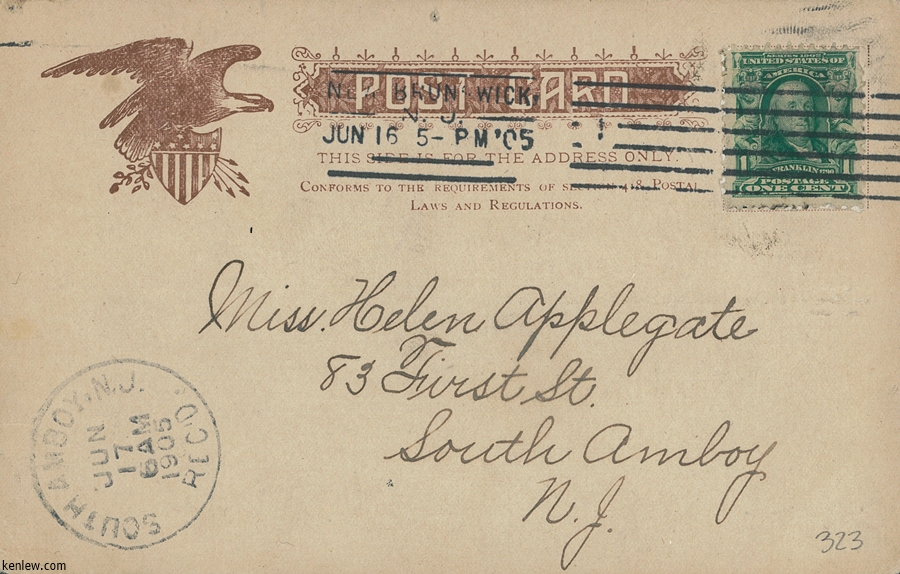 POST CARD
N. BRUNSWICK,
N. J.
JUN 16 5- PM '05
THIS SIDE IS FOR THE ADDRESS ONLY.
CONFORMS TO THE REQUIREMENTS OF SECTION 418, POSTAL
LAWS AND REGULATIONS.
UNITED STATES OF
AMERICA
FRANKLIN
POSTAGE
ONE CENT
Miss. Helen Applegate
83 First St.
South Amboy
N. J.
SOUTH AMBOY, N.J.
JUN
17
6 AM
1905
REC'D.
323
kenlew.com